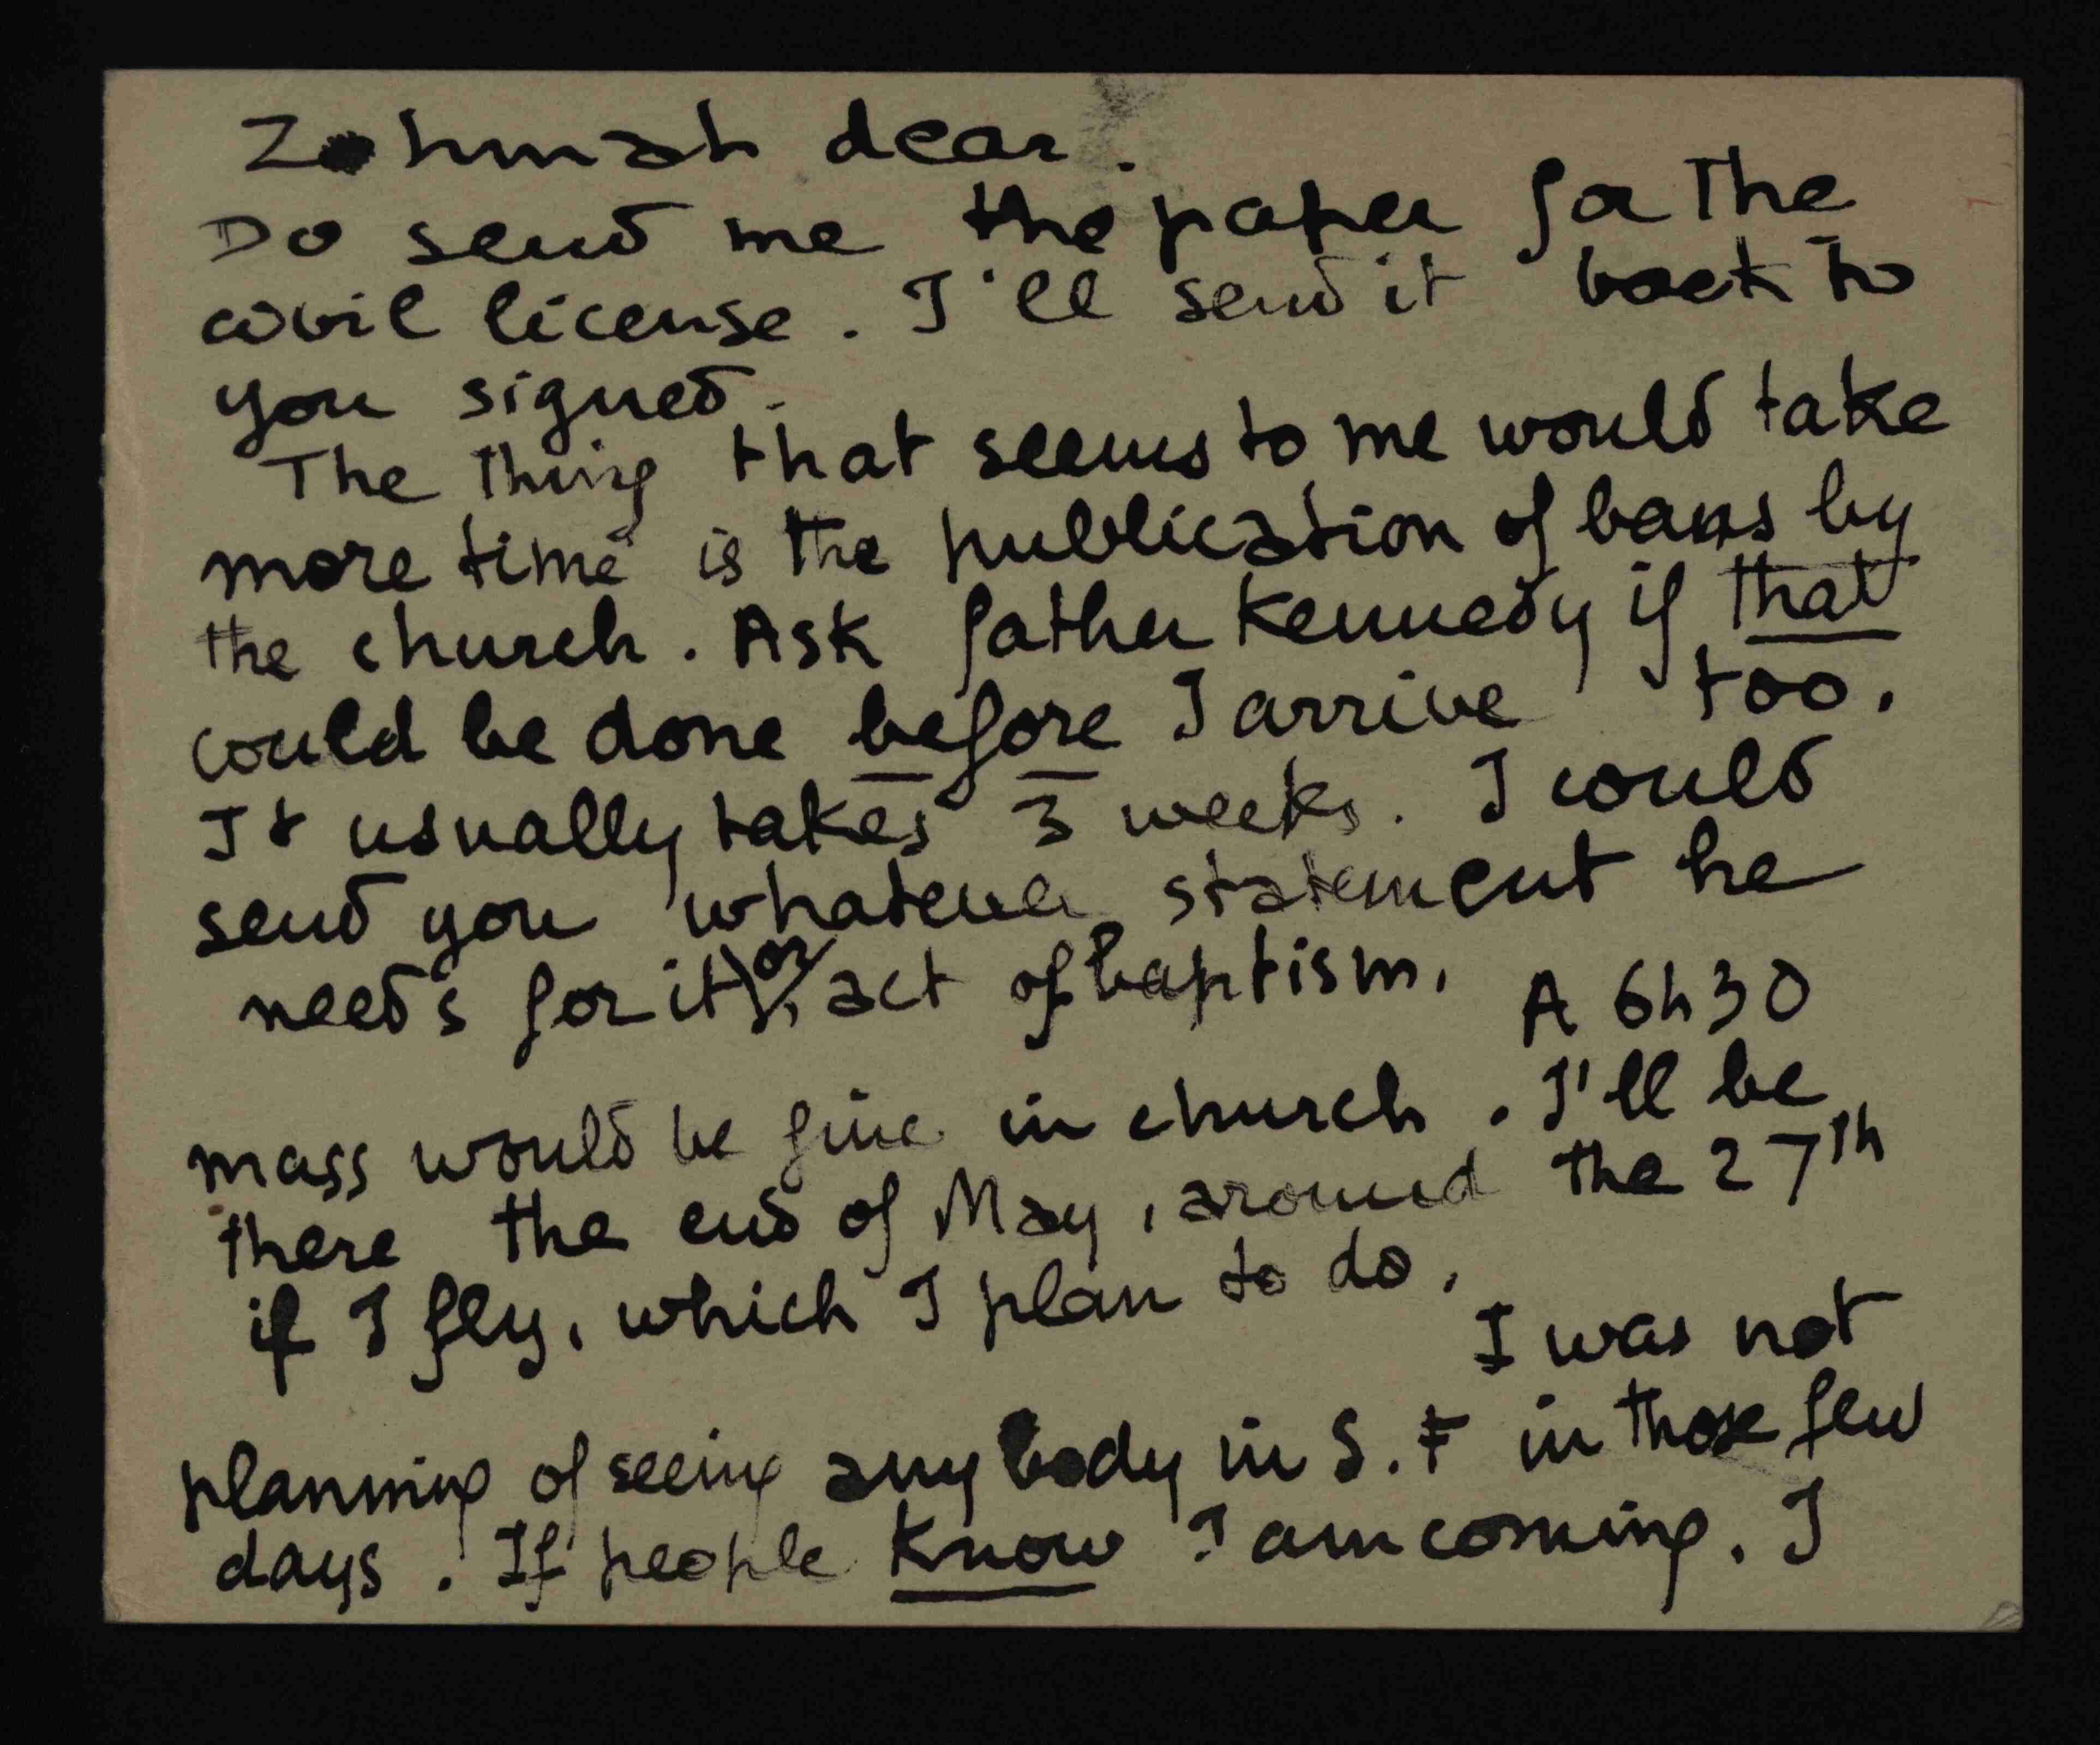 Zohmah dear.
Do send me the paper for the
civil license. I'll send it back to
you signed.
The thing that seems to me would take
more time is the publication of bans by
the church. Ask father Kennedy if that
could be done before I arrive too.
It usually takes 3 weeks. I could
send you whatever statement he
needs for it, or act of baptism. A 6h30
mass would be fine in church. I'll be
there the end of May, around the 27th
if I fly, which I plan to do.
I was not
planning of seeing anybody in S.F in those few
days. If people know I am coming. I